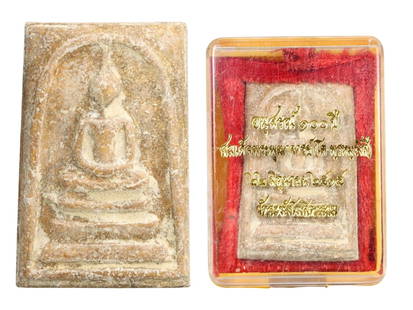 อนุสรณ์ ๑๐๐ ปี
สมเด็จพระพุฒาจารย์ (โต พรหมรังสี)
๒๒ มิถุนายน ๒๕๑๕
วัดระฆังโฆสิตาราม